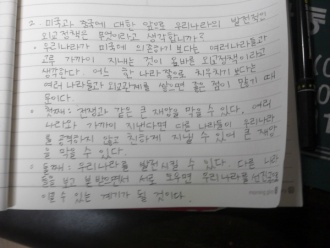 2. 미국과 중국에 대한 앞으로 우리나라의 발전적인
외교정책은 무엇이라고 생각합니까?
· 우리나라가 미국에 의존하기 보다는 여러나라들과
교류 가까이 지내는 것이 올바른 외교정책이라고
생각한다. 어느 한 나라 쪽으로 치우치기 보다는
여러 나라들과 외교관계를 쌓으면 좋은 점이 많기 때
문이다
첫째: 전쟁과 같은 큰 재앙을 막을 수 있다. 여러
나라와 가까이 지낸다면 다른 나라들이 우리나라
를 공격하지 않고 친하게 지낼 수 있어 큰 재앙
을 막을 수 있다
둘째: 우리나라를 발전시킬 수 있다. 다른 나라
들을 보고 본받으면서 서로 도우면 우리나라를 선진국으
로 될 수 있는 계기가 될 것이다.